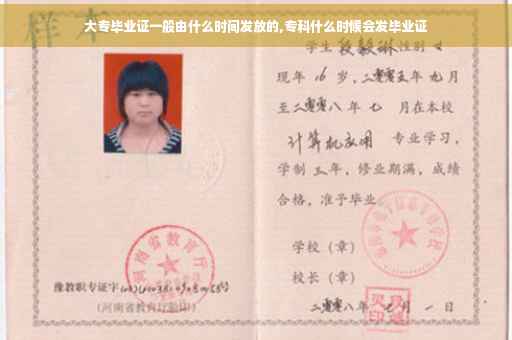 大专毕业证一般由什么时间发放的,专科什么时候会发毕业证
样本
学生 段毅琳 性别 女
现年 16 岁,二零零五年 九月
至二零零八年 七 月在本校
计算机应用 专业学习,
学制 三 年,修业期满,成绩
合格,准予毕业
学校(章)
校长(章)
二零零八年 七 月 一 日
河南省教育厅
豫教职专证字
(河南省教育厅验印)